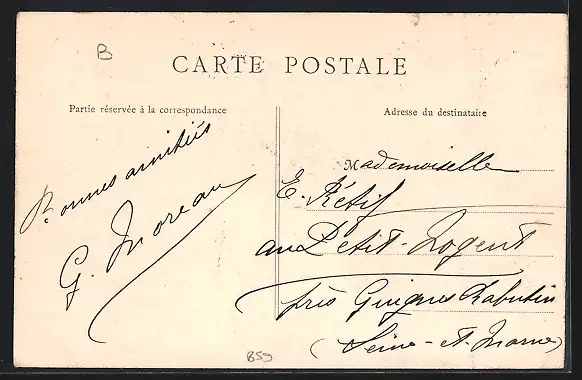 B
CARTE POSTALE
Partie réservée à la correspondance
Adresse du destinataire
Bonnes amitiés
G. Moreau
Mademoiselle
E. Rétif
au Petit-Nogent
près Guignes Rabutin
(Seine-et-Marne)
859